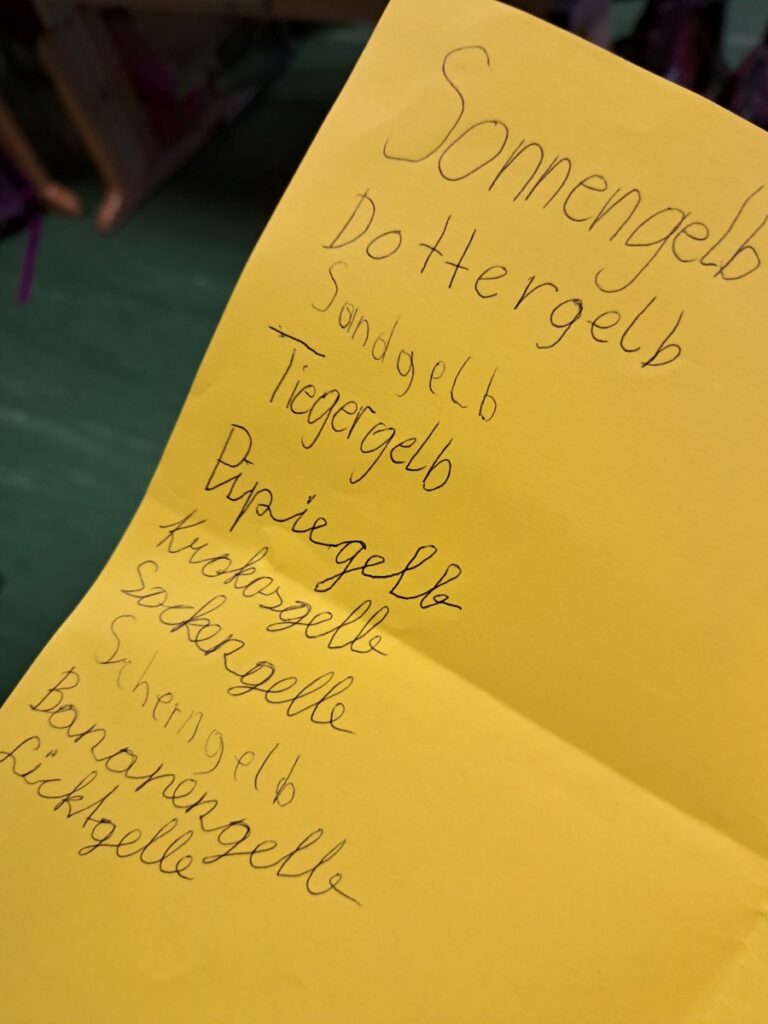 Sonnengelb
Dottergelb
Sandgelb
Tiegergelb
Pipiegelb
Krokosgelb
Sockergelb
Scherngelb
Bananengelb
Lichtgelb